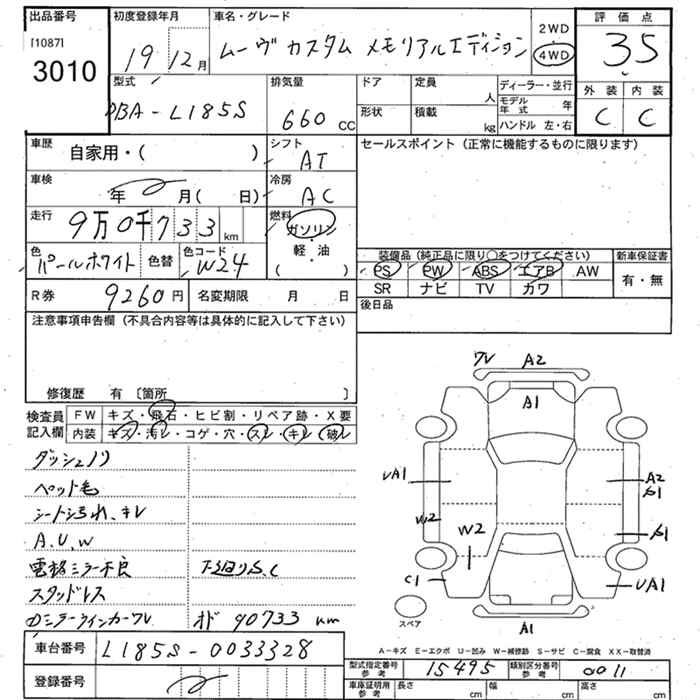 出品番号
[1087]
3010
初度登録年月
19 12月
車名・グレード
ムーヴ カスタム メモリアルエディション
2WD
4WD
評価点
3.5
外装 内装
C C
型式
DBA-L185S
排気量
660 CC
ドア
定員
人
ディーラー・並行
モデル年式 年
形状
積載
kg
ハンドル 左・右
車歴
自家用・( )
シフト
AT
セールスポイント (正常に機能するものに限ります)
車検
年 月( 日)
冷房
AC
走行
9万0千733 km
燃料
ガソリン
・
軽・油
( )
色
パールホワイト
色替
色コード
W24
装備品 (純正品に限り○をつけてください)
PS PW ABS エアB AW
SR ナビ TV カワ
新車保証書
有・無
R券
9260円
名変期限 月 日
後日品
注意事項申告欄 (不具合内容等は具体的に記入して下さい)
修復歴 有 〔箇所 〕
検査員
記入欄
FW キズ・飛石・ヒビ割・リペア跡・X要
内装 キズ・汚レ・コゲ・穴・スレ・キレ・破レ
ダッシュノリ
ペット毛
シート汚れ、キレ
A.U.W
電格ミラー不良
下廻りS.C
スタッドレス
ドミラーウインカーワレ
オド 90733 km
ワレ A2
A1
UA1
A2
S1
W2
S1
W2
C1
UA1
A1
スペア
A-キズ E-エクボ U-凹み W-補修跡 S-サビ C-腐食 XX-取替済
車台番号
L185S-0033328
登録番号
型式指定番号
参考
15495
類別区分番号
参考
0011
車庫証明用
参考
長さ cm
幅 cm
高さ cm